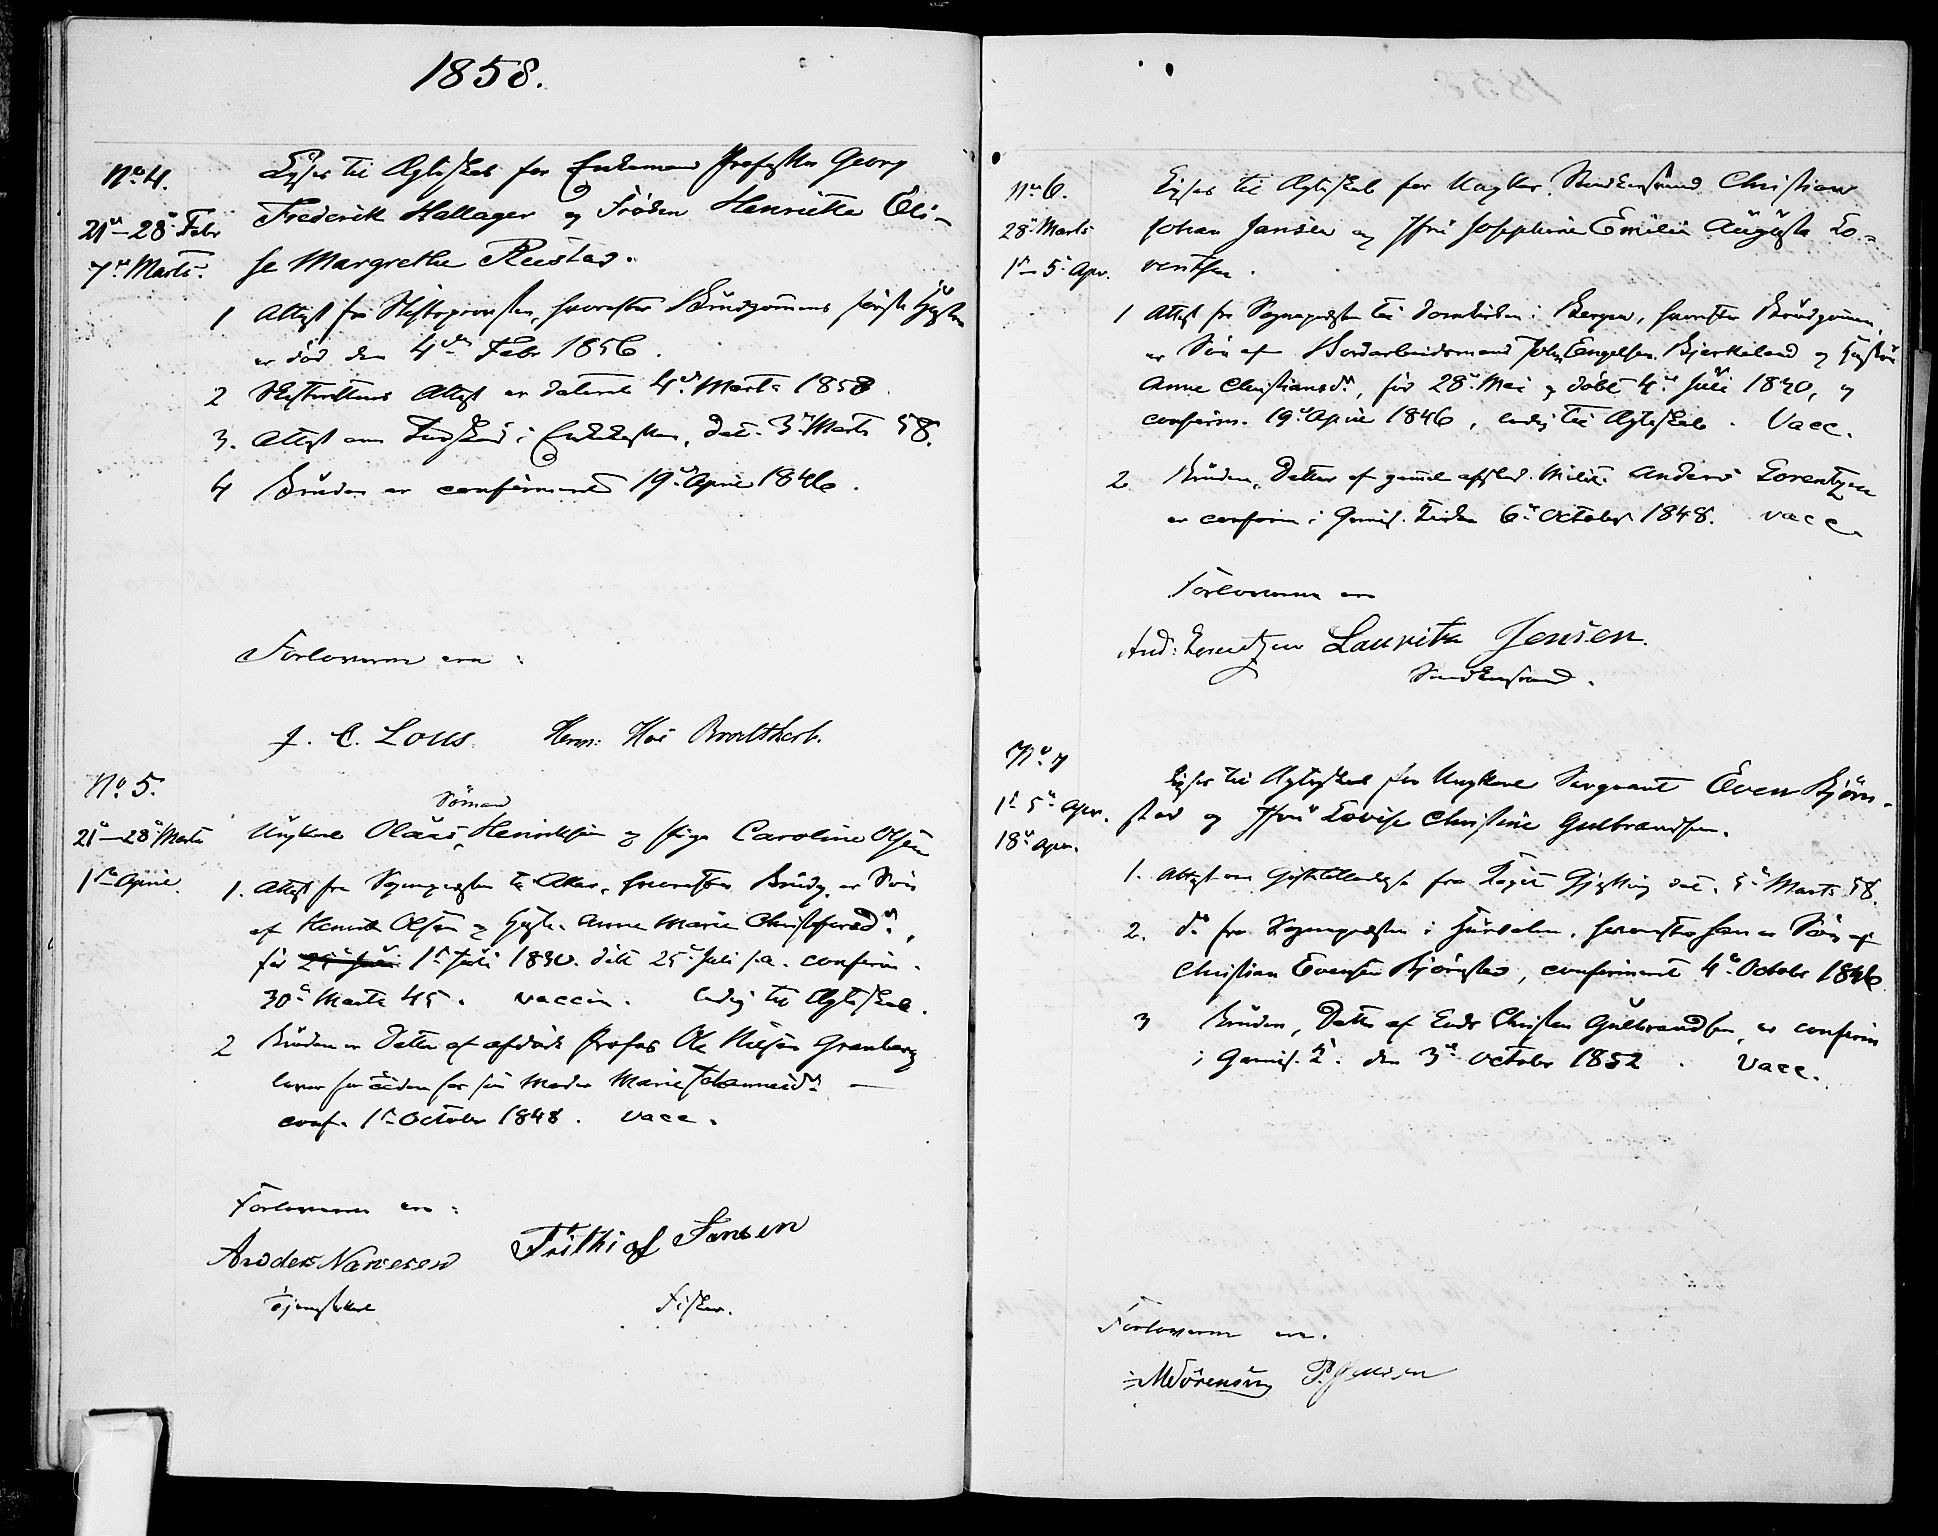 1858.
No 4.
21de–28de Febr
7de Marts.
Lyses til Ægteskab for Enkemand Professor Georg
Frederik Hallager og Frøken Henriette Eli-
se Margrethe Rustad.
1 Attest fra Stiftsprovsten, hvorefter Brudgommens første Hustru
er død den 4de Febr 1856.
2 Skifterettens Attest er dateret 4de Marts 1858
3. Attest om Indskud i Enkekassen, dat. 3die Marts 58.
4 Bruden er confirmeret 19de April 1846.
Forloverne ere:
J. C. Lous Herm: Hoë
No 5.
21de–28de Marts
1ste April.
Sømand
Ungkarl Olaus Henriksen og Pige Caroline Olsen
1. Attest fra Sognepresten til Aker, hvorefter Brudg. er Søn
af Henrik Olsen og Hustr. Anne Marie Christophersd.,
fød 1ste Juli 1830. døbt 25de Juli s.a. confirm.
30de Marts 45. vaccin. ledig til Ægteskab.
2 Bruden er Datter af afdøde Ole Nilsen Granberg
Moder Marie Johannesdr –
conf. 1ste October 1848. vacc.
Forloverne ere:
Anders Narvesen Frithiof Jansen
Tjenestekarl Fisker.
No 6.
28de Marts
1ste–5te Apr.
Lyses til Ægteskab for Ungkar Christian
Johan Jansen og Jfru Josephine Emilie Augusta Lo-
rentzen.
1 Attest fra Sognepresten til Domkirken i Bergen, hvorefter Brudgommen
er Søn af Bordarbeidsmand John Engelsen Bjerkeland og Hustru
Anne Christiansdr, fød 28de Mai og døbt 4de Juli 1830, og
confirm. 19de April 1846, ledig til Ægteskab. Vacc.
2. Bruden, Datter af gammel afsked. Milit. Anders Lorentzen
er confirm i Garnis. Kirken 6te October 1848. vacc.
Forloverne ere
And: Lorentzen Lauritz Jensen.
No 7
1ste 5te Apr.
18de Apr.
Lyses til Ægteskab for Ungkarl Sergeant Even Bjørn-
stad og Jfru Lovise Christine Gulbrandsen.
1. Attest om Giftetilladelse fra dat. 5te Marts 58.
2. do fra Sognepresten i hvorefter han er Søn af
Christian Evensen Bjørnstad, confirmeret 4de Octobr 1846
3 Bruden, Datter af Christen Gulbrandsen, er confirm
i Garnis. K. den 3die October 1852. Vacc.
Forloverne ere.
M Sørensen P. Jensen